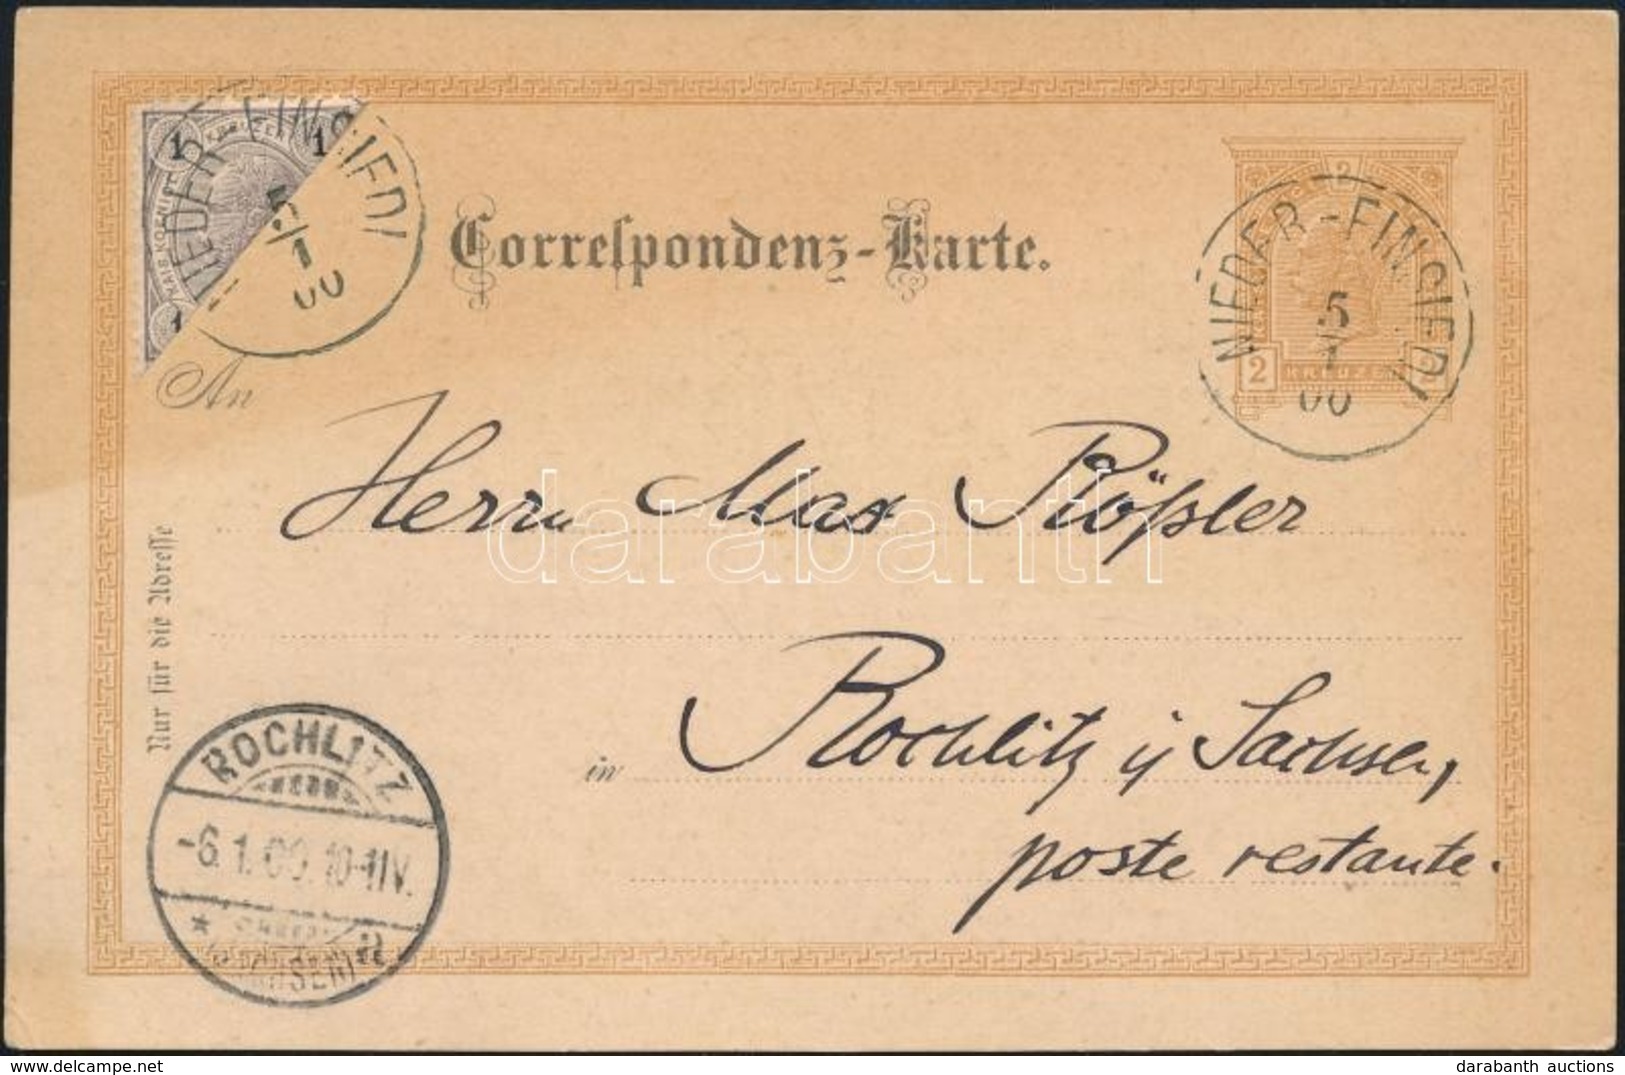 1 KREUZER 1
KAIS. KOENIGL.
1
NIEDER-EINSIEDL
5/1
00
Correſpondenz-Karte.
2
2 KREUZER 2
NIEDER-EINSIEDL
5/1
00
An
Herrn Max Rößler
darabanth
Nur für die Adreſſe
in Rochlitz i/ Sachsen,
poste restante.
ROCHLITZ
-6.1.00.10-11V.
* (SACHSEN) a
darabanth auctions